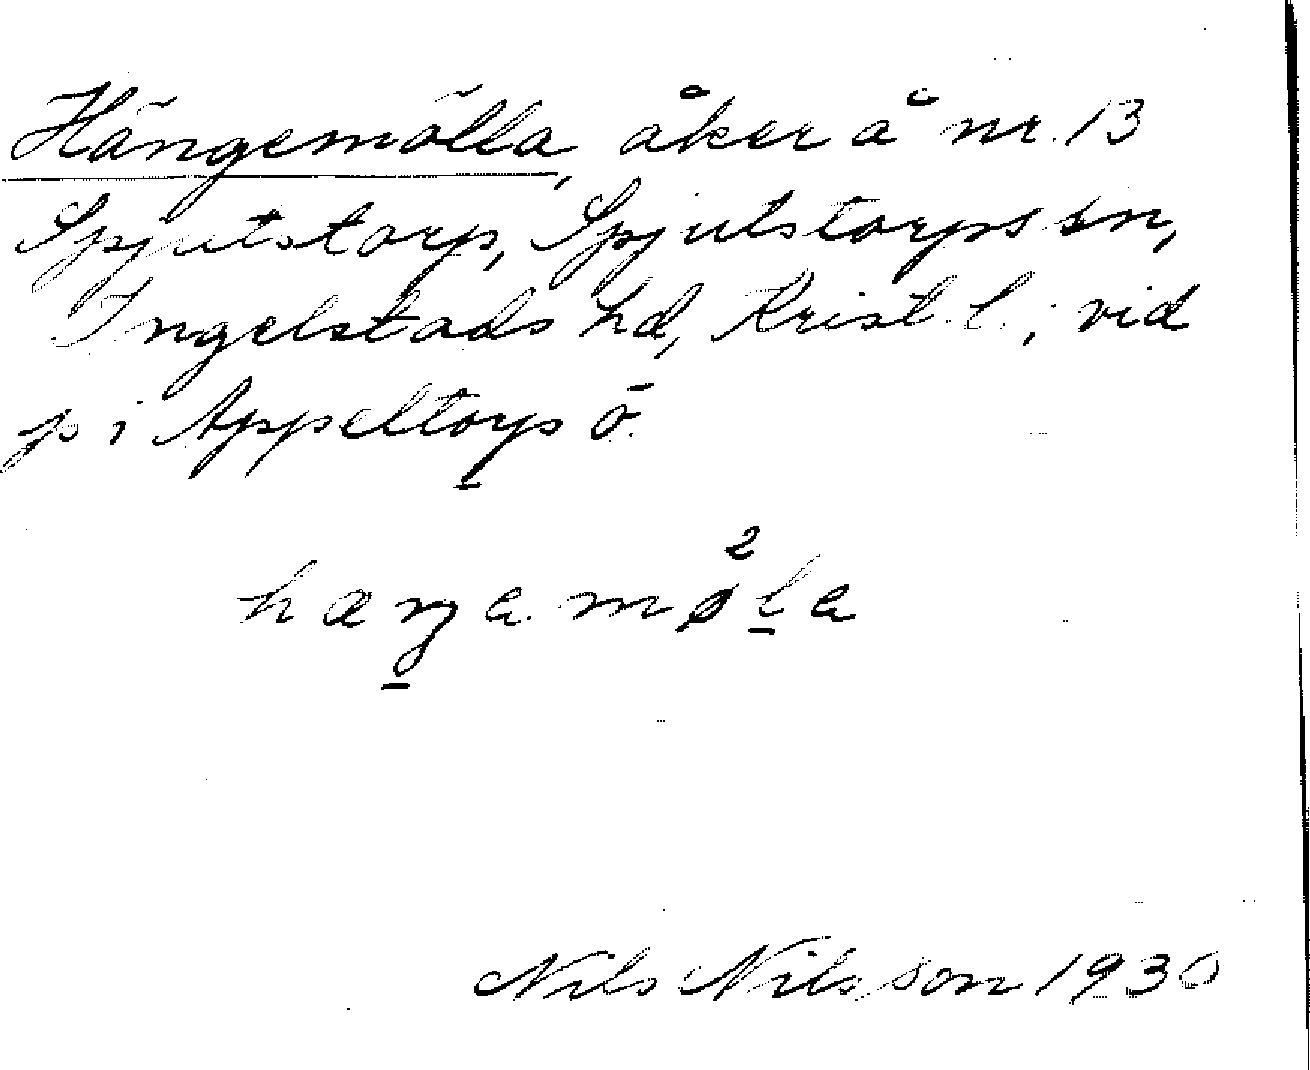 Hängemölla, åker å nr. 13
Spjutstorp, Spjutstorps sn,
Ingelstads hd, Krist. l.; vid
p i Appeltorp ö.
hæŋamø²la
Nils Nilsson 1930